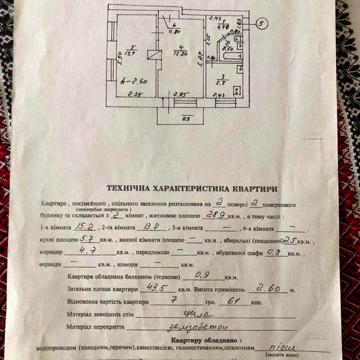 5
13.7
h-2.60
2.35
4
15.20
2.95
2.43
5.7
2.43
0.9
5
ТЕХНІЧНА ХАРАКТЕРИСТИКА КВАРТИРИ
Квартира, посімейного, спільного заселення розташована на 2 поверсі 2 поверхового
(непотрібне закреслити)
будинку та складається з 2 кімнат, житловою площею 28,9 кв.м., в тому числі :
1-а кімната 15.2 кв.м., 2-га кімната 13,7 кв.м., 3-я кімната – кв.м., 4-а кімната – кв.м.
кухні площею 5,7 кв.м., ванної кімнати площею – кв.м., вбиральні (поєднано) 2,5 кв.м.,
коридор 4.7 кв.м., передпокою – кв.м., вбудованої шафи 0.8 кв.м.,
веранди – кв.м., комори кв.м.
Квартира обладнана балконом (терасою) 0,9 кв.м.
Загальна площа квартири 43,5 кв.м. Висота приміщень 2.60 м.
Відновлена вартість квартири 7 грн. 61 коп.
Матеріал зовнішніх стін цегла
Матеріал перекриття залізобетон
Квартиру обладновано :
водопроводом (холодним, гарячим), каналізацією, газопостачанням, опаленням пічне
(вказати яким)